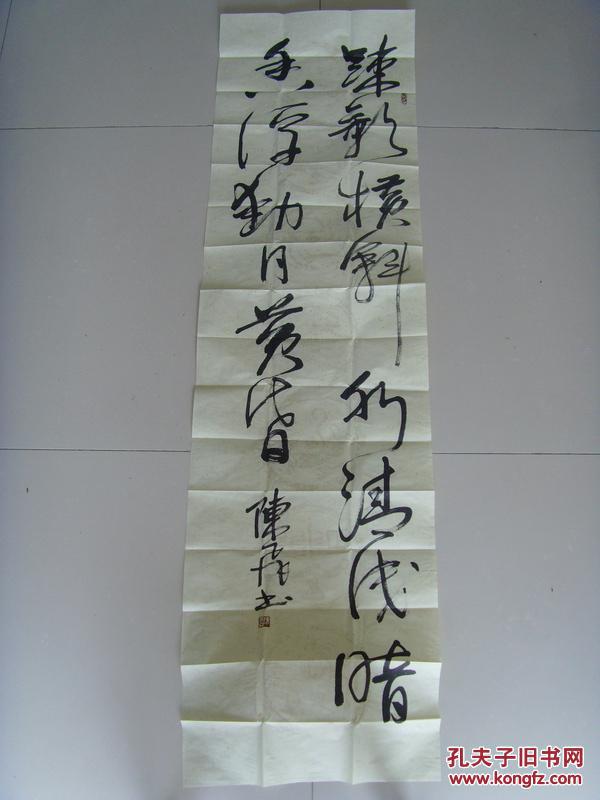 疎影横斜水清浅暗
香浮動月黄昏
陳彦書
孔夫子旧书网
www.kongfz.com